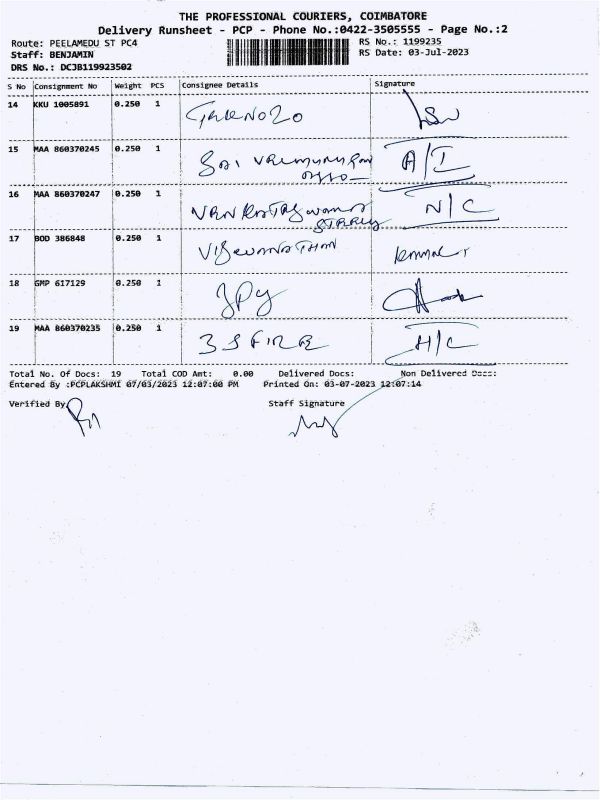 THE PROFESSIONAL COURIERS, COIMBATORE
Delivery Runsheet - PCP - Phone No.:0422-3505555 - Page No.:2
Route: PEELAMEDU ST PC4 RS No.: 1199235
Staff: BENJAMIN RS Date: 03-Jul-2023
DRS No.: DCJB119923502
S No Consignment No Weight PCS Consignee Details Signature
14 KKU 1005891 0.250 1
15 MAA 860370245 0.250 1 A/I
16 MAA 860370247 0.250 1 N/C
17 BOD 386848 0.250 1 VISWANATHAN
18 GMP 617129 0.250 1
19 MAA 860370235 0.250 1 3 S FIRE H/C
Total No. Of Docs: 19 Total COD Amt: 0.00 Delivered Docs: Non Delivered Docs:
Entered By :PCPLAKSHMI 07/03/2023 12:07:00 PM Printed On: 03-07-2023 12:07:14
Verified By Staff Signature